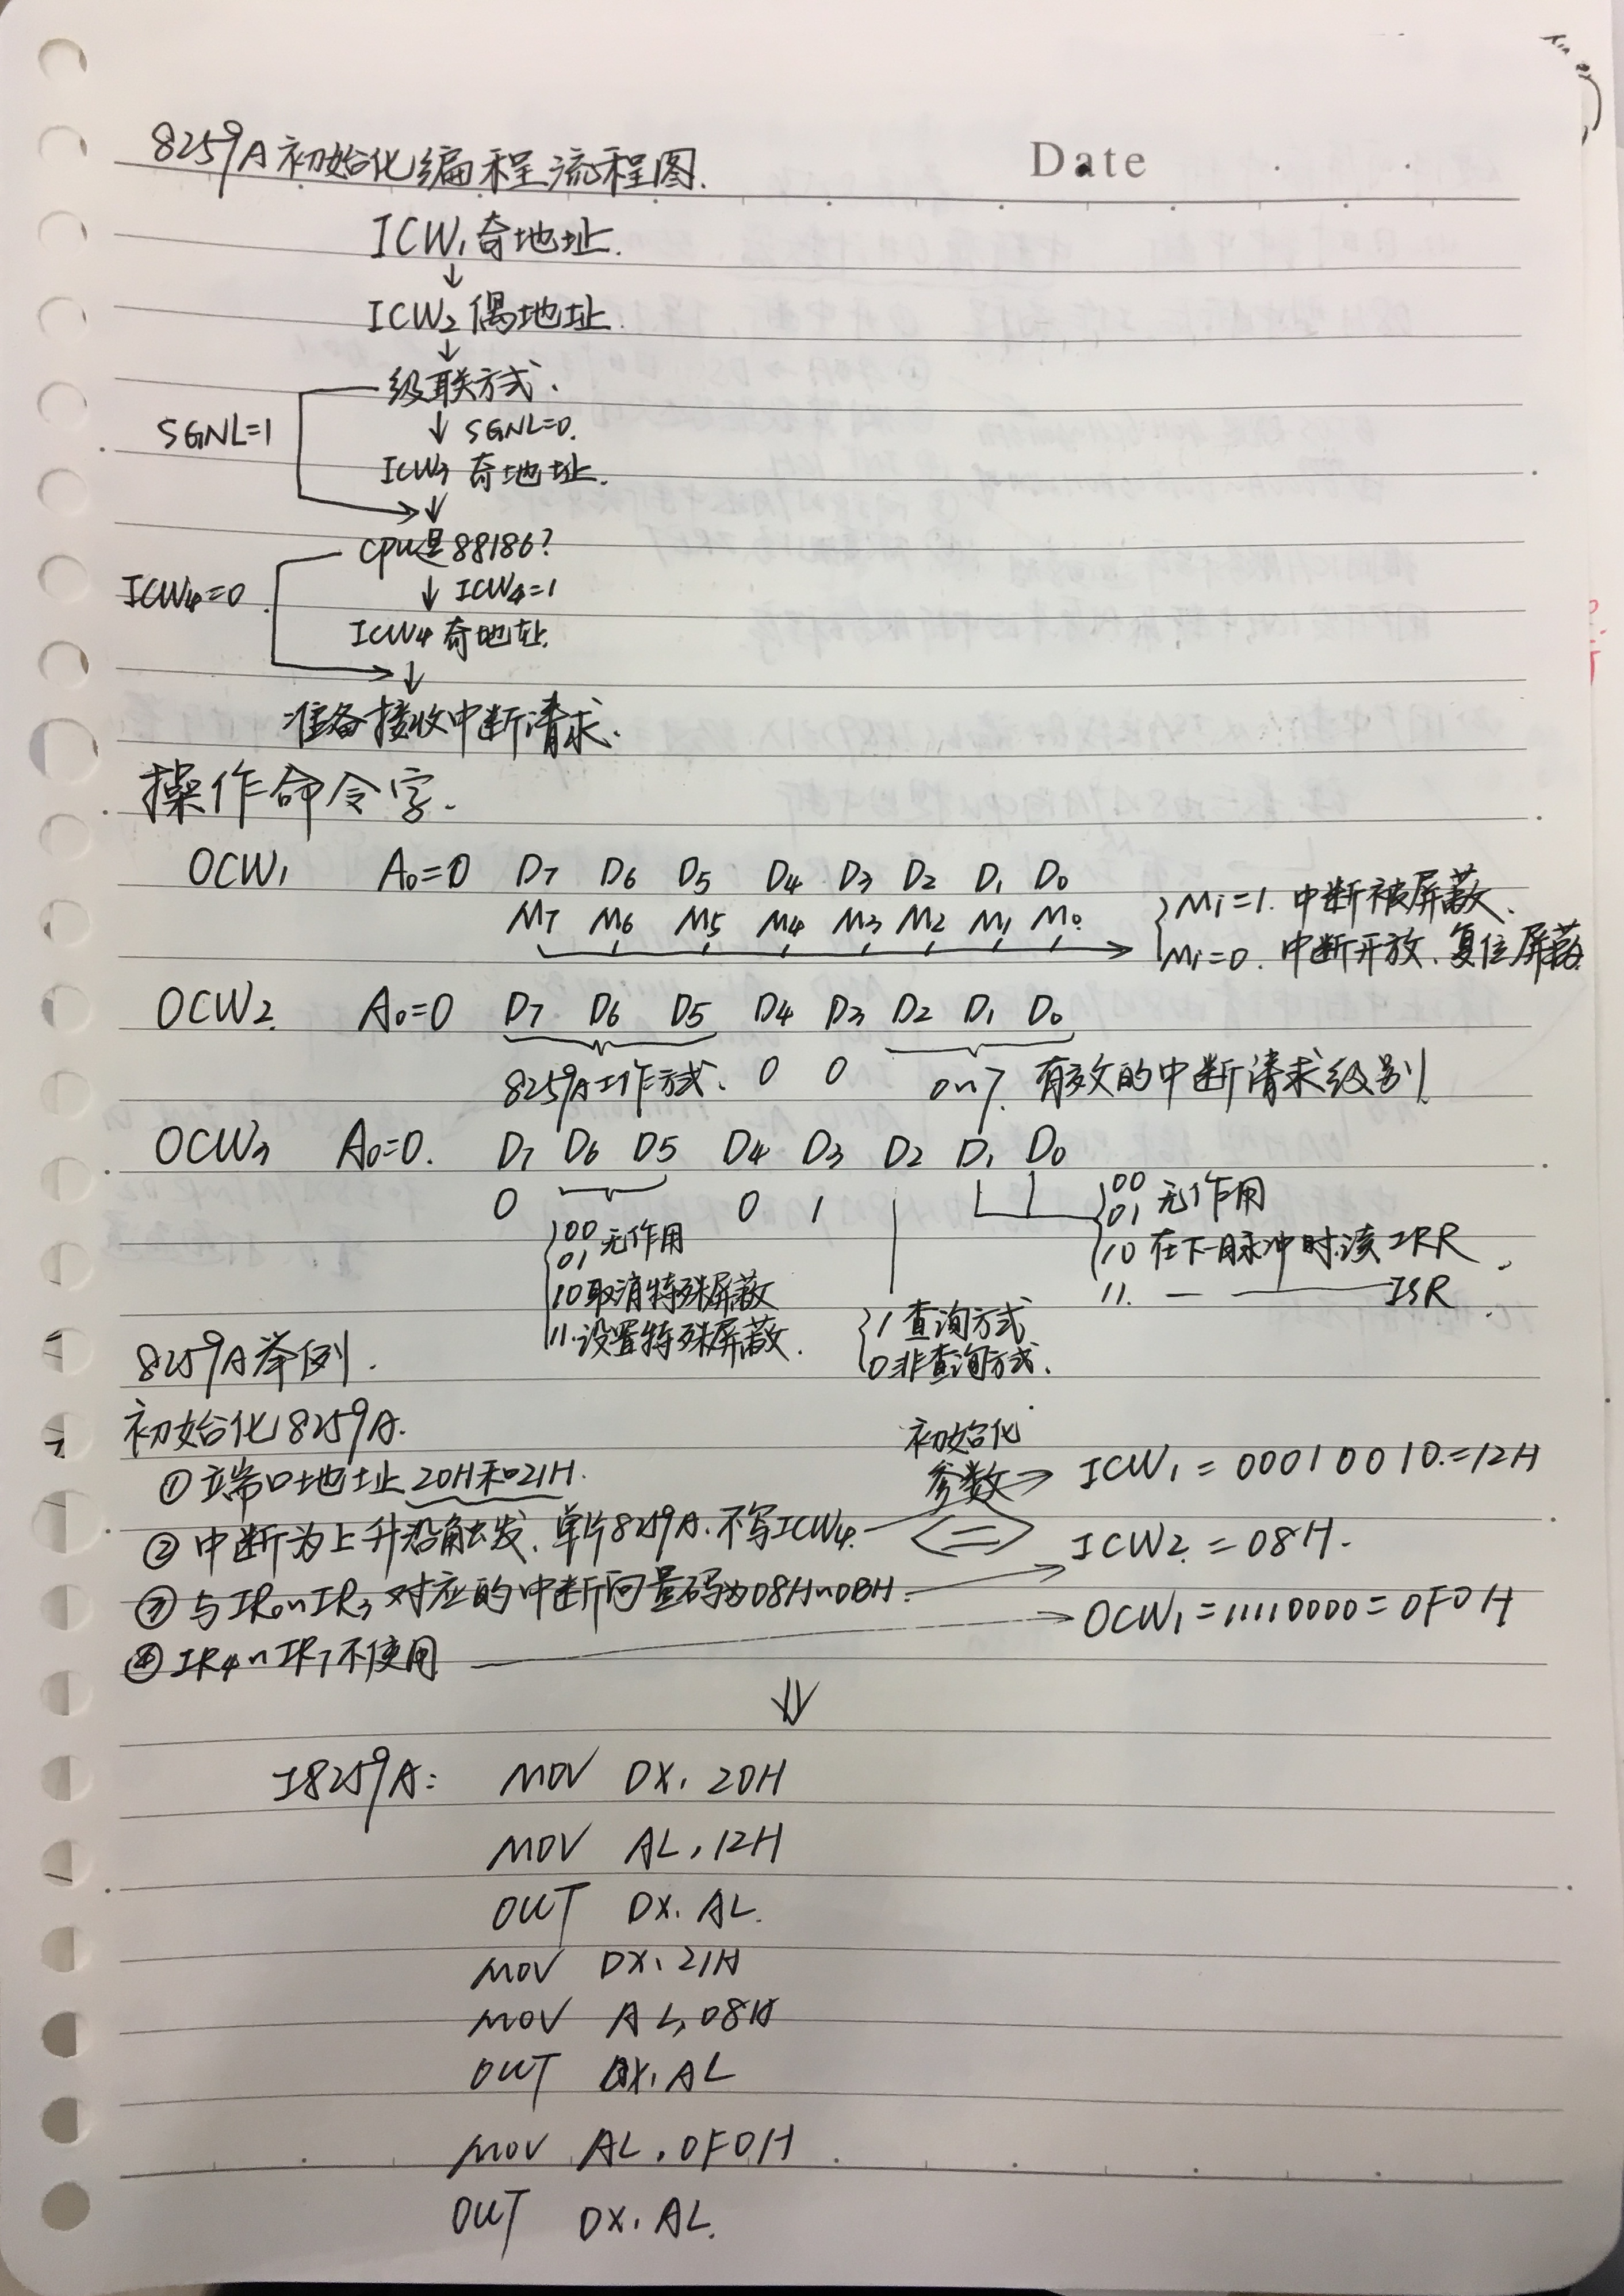 Date
8259A初始化编程流程图.
ICW1 奇地址.
↓
ICW2 偶地址.
↓
级联方式.
SGNL=1
↓ SGNL=0.
ICW3 奇地址.
↓
CPU是88186?
ICW4=0
↓ ICW4=1
ICW4 奇地址.
↓
准备接收中断请求.
操作命令字.
OCW1 A0=0 D7 D6 D5 D4 D3 D2 D1 D0
M7 M6 M5 M4 M3 M2 M1 M0
Mi=1. 中断被屏蔽.
Mi=0. 中断开放、复位屏蔽
OCW2 A0=0 D7 D6 D5 D4 D3 D2 D1 D0
8259A工作方式. 0 0 0~7. 有效的中断请求级别
OCW3 A0=0. D7 D6 D5 D4 D3 D2 D1 D0
0 0 1
00
01 无作用
10取消特殊屏蔽
11.设置特殊屏蔽.
1 查询方式
0非查询方式.
00
01 无作用
10 在下一脉冲时读IRR
11. — —— ISR
8259A举例.
初始化8259A.
①端口地址20H和21H.
②中断为上升沿触发.单片8259A.不写ICW4.
③与IR0~IR3对应的中断向量码为08H~0BH.
④IR4~IR7不使用
初始化
参数→ ICW1=00010010.=12H
ICW2.=08H.
OCW1=11110000=0F0H
⇓
I8259A: MOV DX, 20H
MOV AL, 12H
OUT DX, AL.
MOV DX, 21H
MOV AL, 08H
OUT DX, AL
MOV AL, 0F0H
OUT DX, AL.